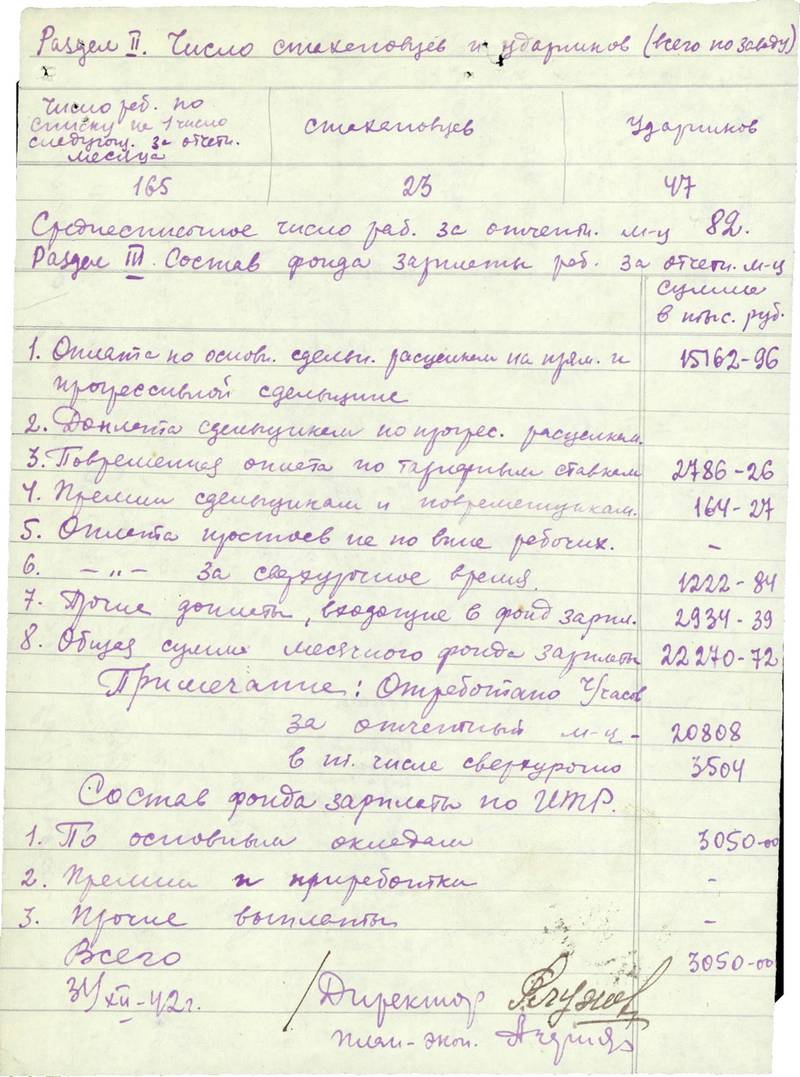 Раздел II. Число стахановцев и ударников (всего по заводу)
Число раб. по списку на 1 число следующ. за отчетн. месяца
стахановцев
ударников
165
23
47
Среднесписочное число раб. за отчетн. м-ц 82.
Раздел III. Состав фонда зарплаты раб. за отчетн. м-ц
Сумма
в тыс. руб.
1. Оплата по основн. сдельн. расценкам на прям. и 15162-96
прогрессивной сдельщине
2. Доплата сдельщикам по прогрес. расценкам.
3. Повременная оплата по тарифным ставкам 2786-26
4. Премии сдельщикам и повременщикам. 164-27
5. Оплата простоев не по вине рабочих. -
6. -„- за сверхурочное время. 1222-84
7. Прочие доплаты, входящие в фонд зарпл. 2934-39
8. Общая сумма месячного фонда зарплаты 22270-72
Примечание: Отработано Ч/часов
за отчетный м-ц - 20808
в т. числе сверхурочно 3504
Состав фонда зарплаты по ИТР.
1. По основным окладам 3050-00
2. Премии и приработки -
3. Прочие выплаты -
Всего 3050-00
XII-42г.
/ Директор
план-экон.